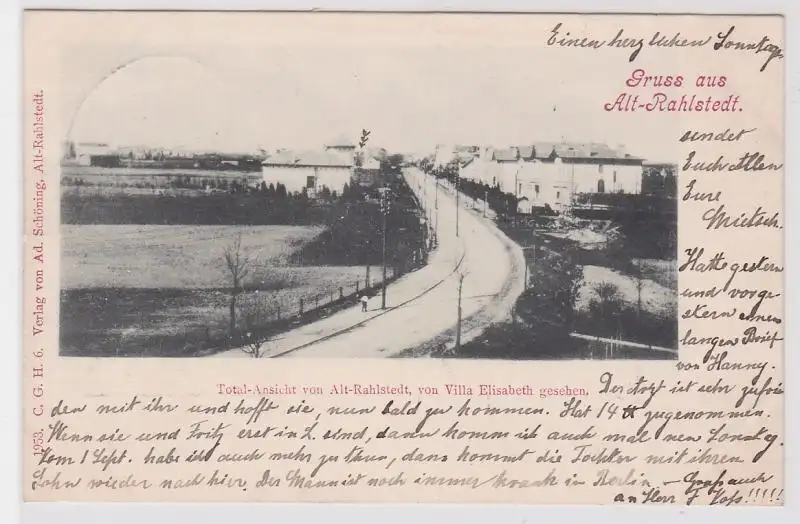 Einen herzlichen Sonntags
Gruss aus
Alt-Rahlstedt.
sendet
Euch Allen
Eure
Mietsch.
Hatte gestern
und vorge-
stern einen
langen Brief
von Hanny.
Der Arzt ist sehr zufrie
den mit ihr und hofft sie, nun bald zu kommen. Hat 14 ℔ zugenommen.
Wenn sie und Fritz erst in L. sind, dann komm ich auch mal nen Sonntag.
Vom 1 Sept. habe ich auch mehr zu thun, dann kommt die Tochter mit ihrem
Sohn wieder nach hier. Der Mann ist noch immer krank in Berlin. – Gruß auch
an Herr F. Voss!!!!!
Total-Ansicht von Alt-Rahlstedt, von Villa Elisabeth gesehen.
1953. C. G. H. 6. Verlag von Ad. Schöning, Alt-Rahlstedt.